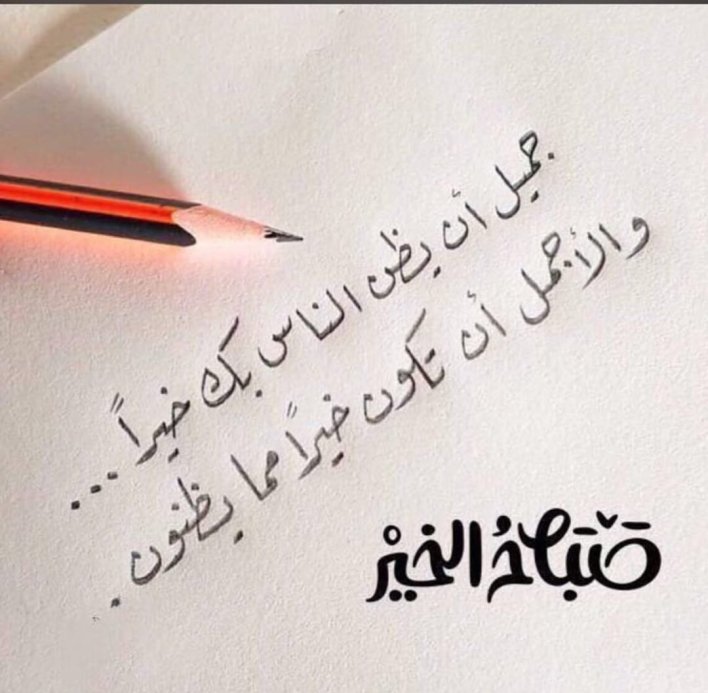 جميل أن يظن الناس بك خيراً ...
والأجمل أن تكون خيراً مما يظنون .
صَبَاحُ الخَيْر